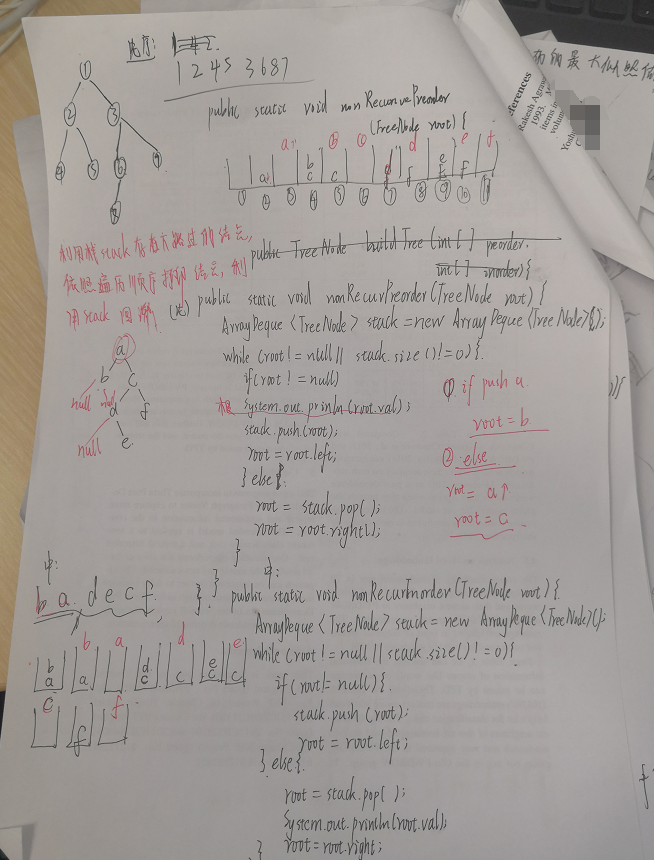 先序:
1 2 4 5 3 6 8 7
public static void nonRecursivePreorder
(TreeNode root) {
a b c d e f
a b c c d f e f f
① ② ③ ④ ⑤ ⑥ ⑦ ⑧ ⑨ ⑩ ⑪
1
2 3
4 5 6 7
8
利用栈stack存在走过的结点,
依照遍历顺序打印结点,利
用stack回溯
public TreeNode buildTree (int[] preorder.
int[] inorder) {
(先) public static void nonRecurPreorder(TreeNode root) {
ArrayDeque <TreeNode> stack = new ArrayDeque <TreeNode>();
while (root != null || stack.size() != 0) {
if(root != null)
根 System.out.println(root.val);
stack.push(root);
root = root.left;
} else {
root = stack.pop( );
root = root.right();
}
}
}
① if push a.
root = b.
② else
root = a↑
root = c
a
b c
null null d f
null e
中:
b a d e c f,
b a d e
b a a d c c e c c
c f
f
中:
public static void nonRecurInorder (TreeNode root) {
ArrayDeque <TreeNode> stack = new ArrayDeque <TreeNode>();
while (root != null || stack.size() != 0) {
if (root != null) {
stack.push (root);
root = root.left;
} else {
root = stack.pop( );
System.out.println(root.val);
root = root.right;
}
eferences
Rakesh Agraw
1993.
items in
volum
Yoshu